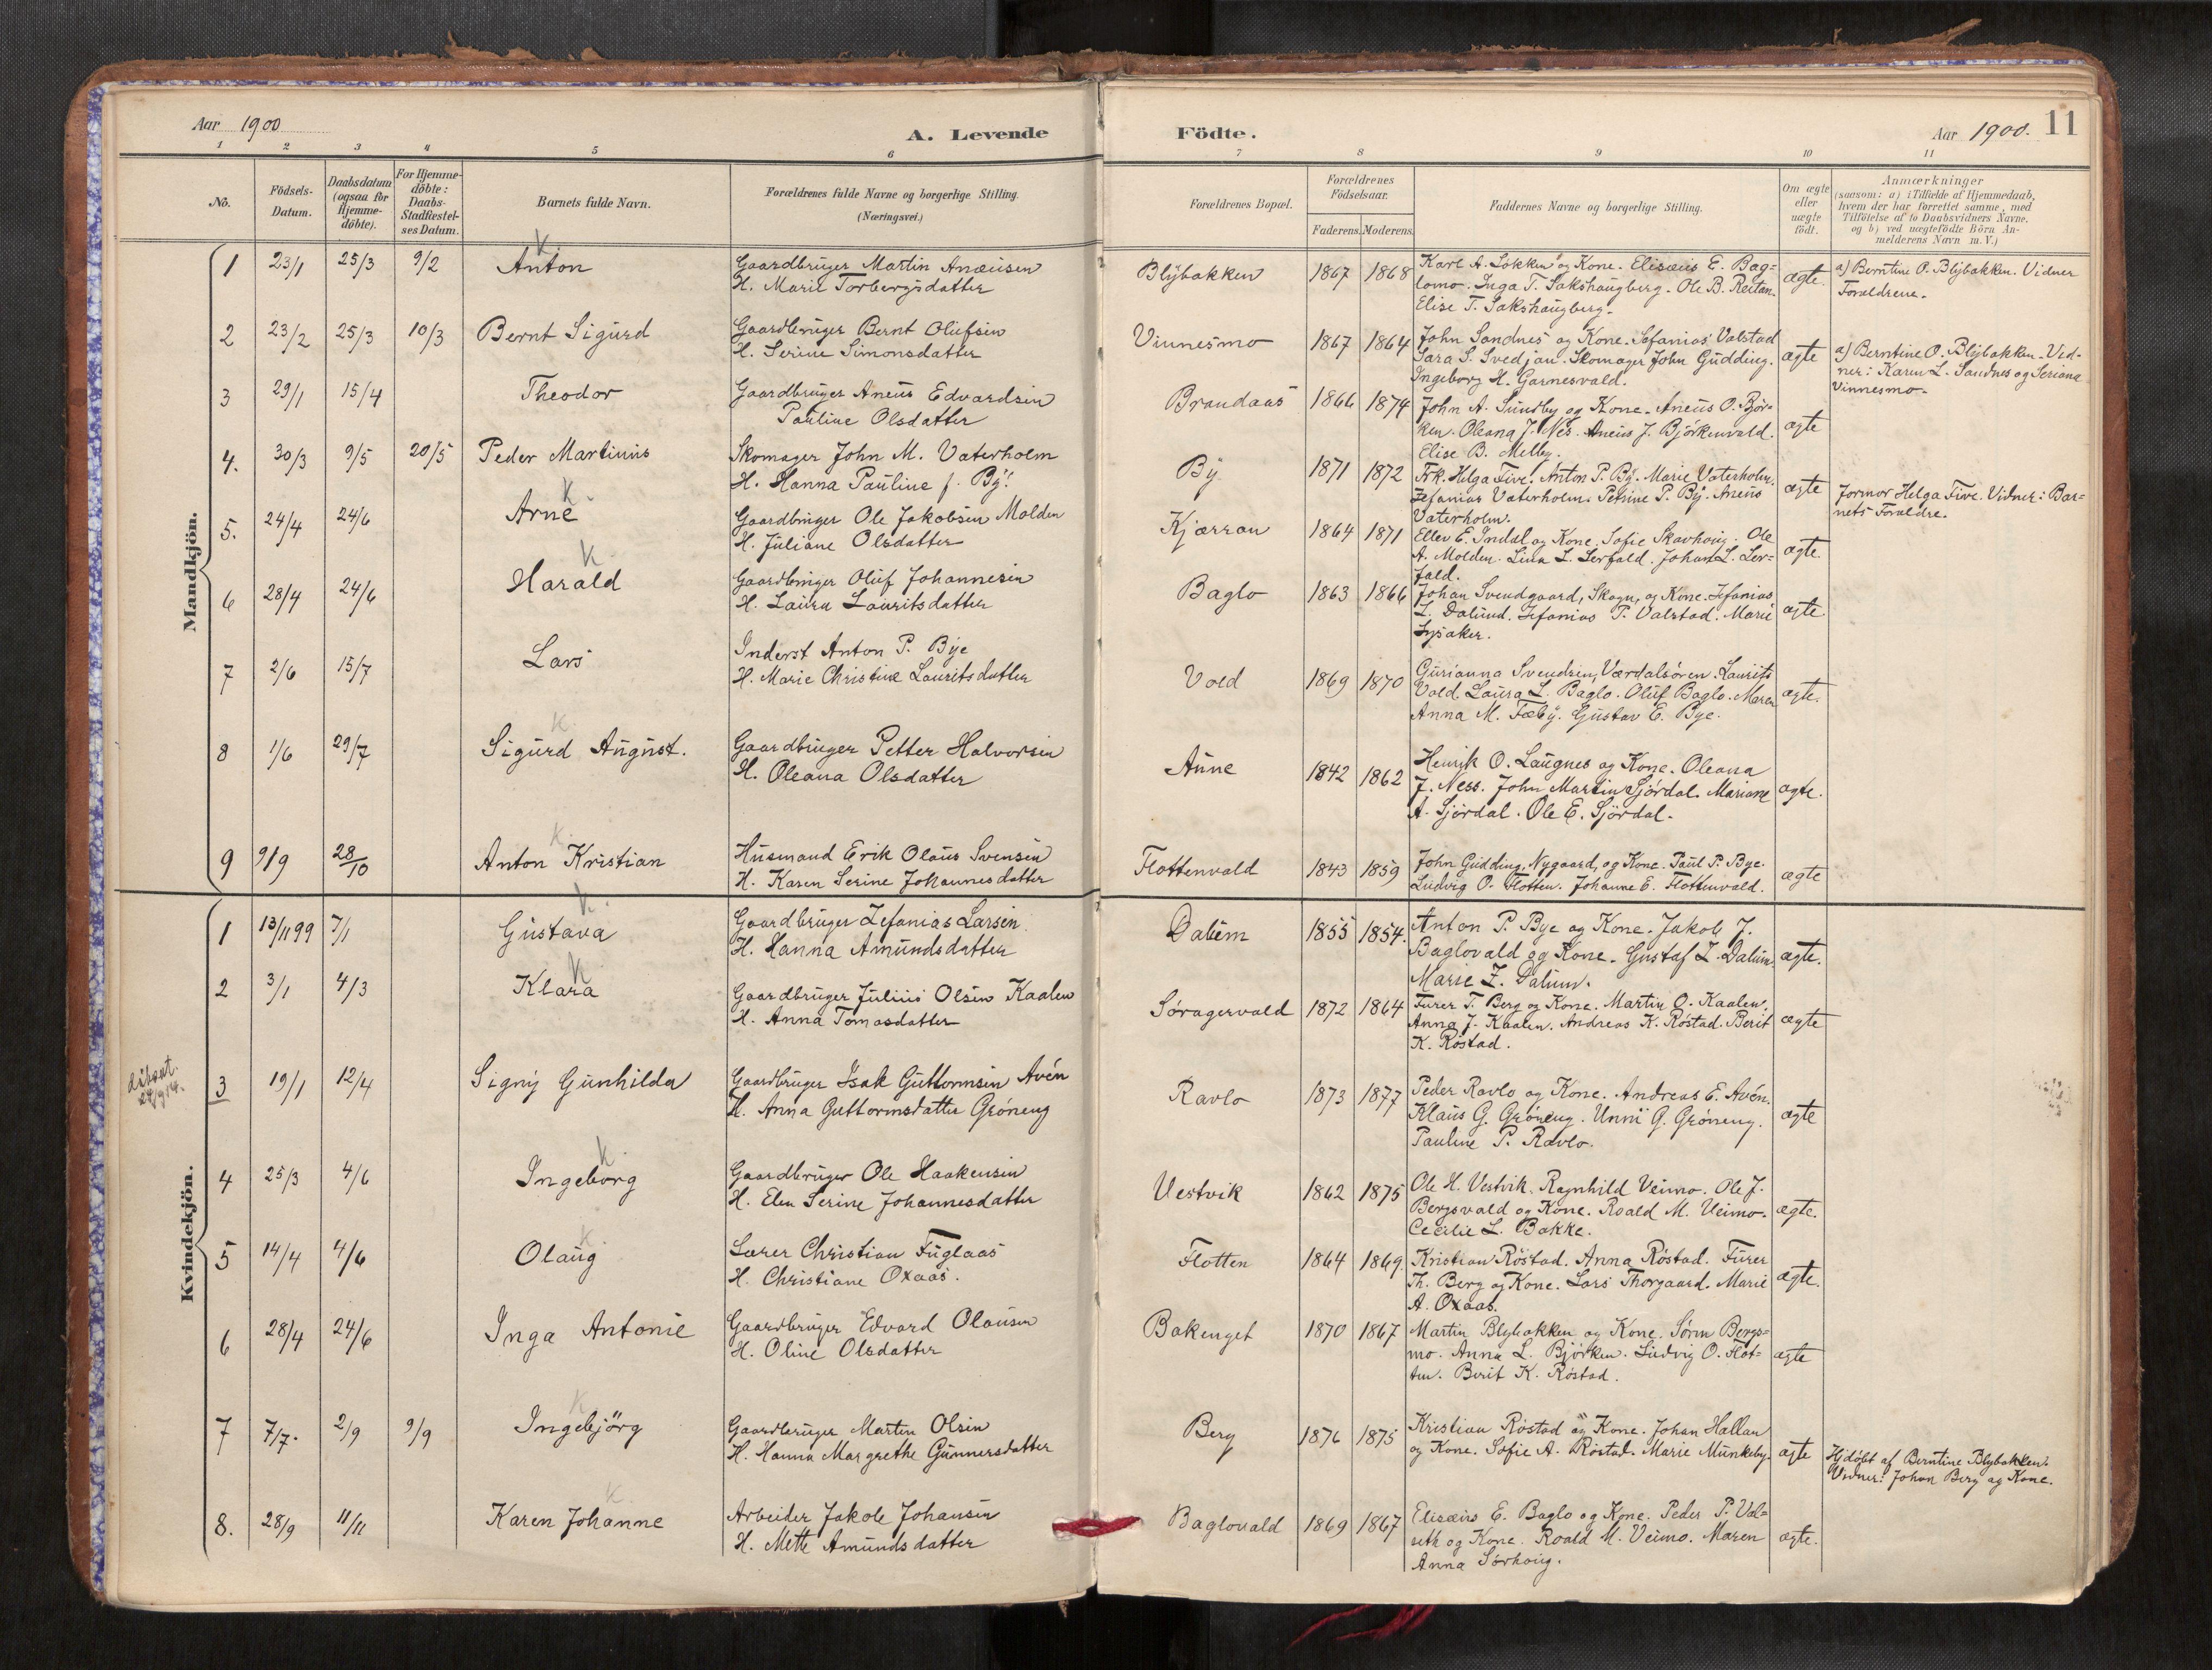 Aar 1900
A. Levende
Födte.
Aar 1900. 11
1 2 3 4 5 6 7 8 9 10 11
No.
Födsels-Datum.
Daabsdatum (ogsaa for Hjemme-döbte).
For Hjemme-döbte: Daabs-Stadfæstel-ses Datum.
Barnets fulde Navn.
Forældrenes fulde Navne og borgerlige Stilling. (Næringsvei.)
Forældrenes Bopæl.
Forældrenes Födselsaar.
Faderens. Moderens.
Faddernes Navne og borgerlige Stilling.
Om ægte eller uægte födt.
Anmærkninger
(saasom: a) i Tilfælde af Hjemmedaab,
hvem der har forrettet samme, med
Tilföielse af to Daabsvidners Navne,
og b) ved uægtefödte Börn An-
melderens Navn m. V.)
Mandkjön.
1 23/1 25/3 9/2 Anton K
Gaardbruger Martin Anæusen
H. Marie Torbergsdatter
Blybakken 1867 1868
Karl A. Løkken og Kone. Elisæus E. Bag=
lomo. Inga T. Sakshaugberg. Ole B. Reitan.
Elise T. Sakshaugberg.
ægte.
a) Berntine O. Blybakken. Vidner
Forældrene.
2 23/2 25/3 10/3 Bernt Sigurd
Gaardbruger Bernt Olufsen
H. Serine Simonsdatter
Vinnesmo 1867 1864
John Sandnes og Kone. Sefanias Valstad
Sara S. Svedjan. Skomager John Gudding.
Ingeborg H. Garnesvald.
ægte
a) Berntine O. Blybakken. Vid-
ner: Karen L. Sandnes og Seriana
Vinnesmo.
3 29/1 15/4 Theodor
Gaardbruger Aneus Edvardsen
Pauline Olsdatter
Brandaas 1866 1874
John A. Sundby og Kone. Aneus O. Bjør-
ken. Oleana J. Nes. Aneus J. Bjørkenvald.
Elise B. Melby.
ægte
4. 30/3 9/5 20/5 Peder Martinus
Skomager John M. Vaterholm
H. Hanna Pauline f. By.
By 1871 1872
Frk. Helga Five. Anton P. By. Marie Vaterholm.
Zefanias Vaterholm. Petrine P. By. Aneus
Vaterholm.
ægte
Jormor Helga Five. Vidner: Bar=
nets Forældre.
5. 24/4 24/6 Arne K.
Gaardbruger Ole Jakobsen Molden
H. Juliane Olsdatter
Kjærran 1864 1871
Ellev E. Indal og Kone. Sofie Skavhaug. Ole
A. Molden. Lina L. Lerfald. Johan L. Ler-
fald.
ægte.
6 28/4 24/6 Harald K.
Gaardbruger Oluf Johannesen
H. Laura Lauritsdatter
Baglo 1863 1866
Johan Svendgaard, Skogn, og Kone. Zefanias
L. Dalund. Zefanias P. Valstad. Marie
Lysaker.
ægte.
7 2/6 15/7 Lars
Inderst Anton P. Bye
H. Marie Christine Lauritsdatter
Vold 1869 1870
Gurianna Svendsen, Værdalsøren. Laurits
Vold. Laura L. Baglo. Oluf Baglo. Maren
Anna M. Fæby. Gustav E. Bye.
ægte.
8 1/6 29/7 Sigurd August. K
Gaardbruger Petter Halvorsen
H. Oleana Olsdatter
Aune 1842 1862
Henrik O. Laugnes og Kone. Oleana
J. Ness. John Martin Sjørdal. Mariane
A. Sjørdal. Ole E. Sjørdal.
ægte.
9 9/9 28/10 Anton Kristian K.
Husmand Erik Olaus Svensen
H. Karen Serine Johannesdatter
Flottenvald 1843 1859
John Gudding, Nygaard, og Kone. Paul P. Bye.
Ludvig O. Flotten. Johanne E. Flottenvald.
ægte
Kvindekjön.
1 13/11 99 7/1 Gustava K.
Gaardbruger Zefanias Larsen.
H. Hanna Amundsdatter
Dalum 1855 1854.
Anton P. Bye og Kone. Jakob J.
Baglovald og Kone. Gustaf Z. Dalum.
Marie Z. Dalum.
ægte.
2 3/1 4/3 Klara K
Gaardbruger Julius Olsen Kaalen
H. Anna Tomasdatter
Søragervald 1872 1864
Furer T. Berg og Kone. Martin O. Kaalen.
Anna J. Kaalen. Andreas K. Røstad. Berit
K. Røstad.
ægte
3 19/1 12/4 Signy Gunhilda
Gaardbruger Isak Guttormsen Avén
H. Anna Guttormsdatter Grøneng
Ravlo 1873 1877
Peder Ravlo og Kone. Andreas E. Avén.
Klaus G. Grøneng. Unni G. Grøneng.
Pauline P. Ravlo.
ægte
4 25/3 4/6 Ingeborg K.
Gaardbruger Ole Haakensen
H. Elen Serine Johannesdatter
Vestvik 1862 1875
Ole H. Vestvik. Ragnhild Veimo. Ole J.
Bergsvald og Kone. Roald M. Veimo.
Cecilie L. Bakke.
ægte.
5 14/4 4/6 Olaug K.
Lærer Christian Fuglaas
H. Christiane Oxaas.
Flotten 1864 1869.
Kristian Røstad. Anna Røstad. Furer
Th. Berg og Kone. Lars Thorgaard. Marie
A. Oxaas.
ægte.
6 28/4 24/6 Inga Antonie
Gaardbruger Edvard Olausen
H. Oline Olsdatter
Bakenget 1870 1867
Martin Blybakken og Kone. Søren Bergs=
mo. Anna L. Bjørken. Ludvig O. Flot=
ten. Berit K. Røstad.
ægte
7 7/7. 2/9 9/9 Ingebjörg K
Gaardbruger Martin Olsen
H. Hanna Margrethe Gunnersdatter
Berg 1876 1875
Kristian Røstad og Kone. Johan Hallan
og Kone. Sofie A. Røstad. Marie Munkeby.
ægte
Hjdøbt af Berntine Blybakken.
Vidner: Johan Berg og Kone.
8. 28/9 11/11 Karen Johanne K
Arbeider Jakob Johansen
H. Mette Amundsdatter
Baglovald 1869 1867
Elisæus E. Baglo og Kone. Peder P. Val=
seth og Kone. Roald M. Veimo. Maren
Anna Sørhoug.
ægte.